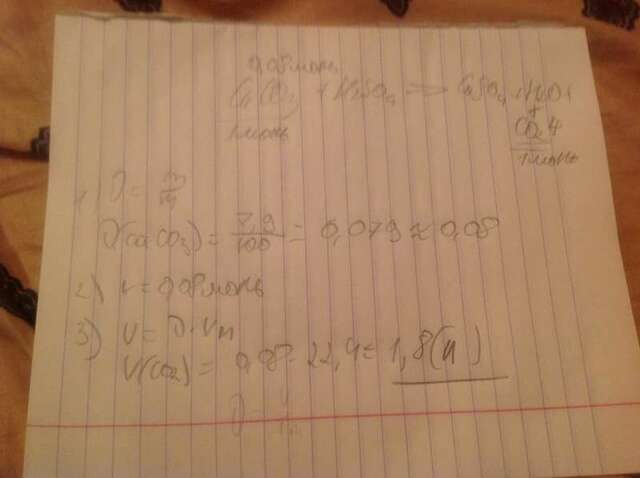 0,08 моль
CaCO3 + H2SO4 = CaSO4 + H2O +
1 моль
CO2↑
1 моль
1) ν = m/M
ν(CaCO3) = 7,9/100 = 0,079 ≈ 0,08
2) ν = 0,08 моль
3) V = ν · Vm
V(CO2) = 0,08 · 22,4 = 1,8 (л)